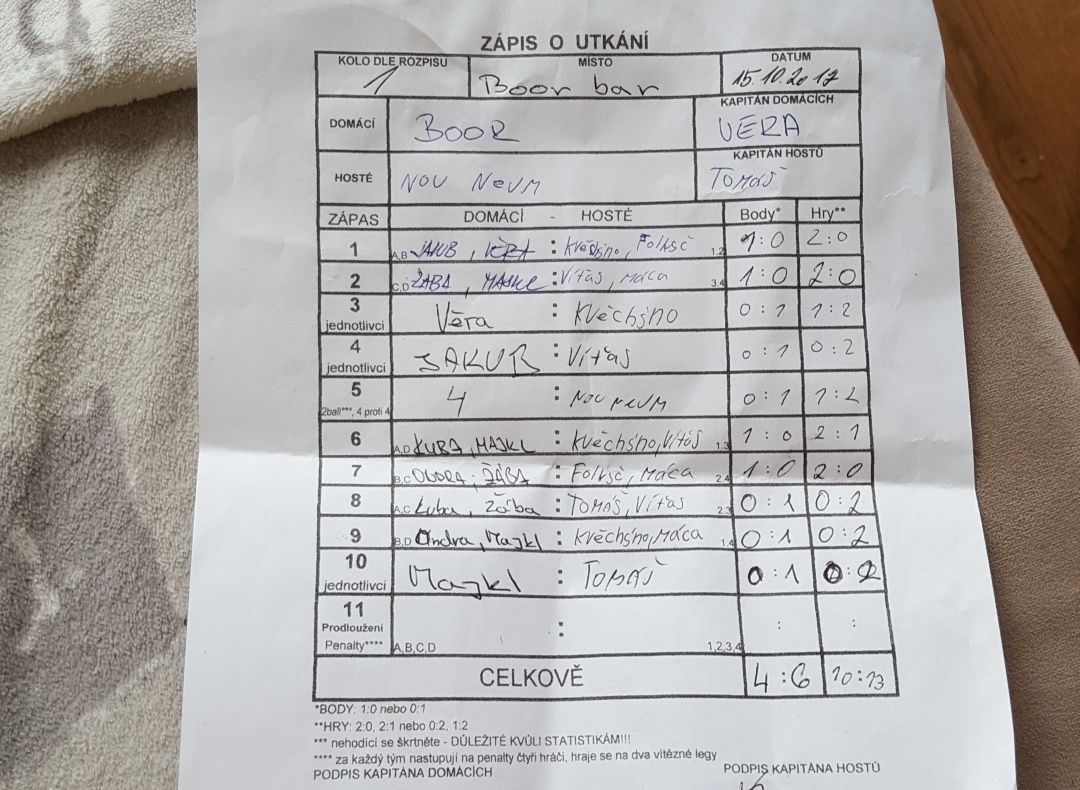 ZÁPIS O UTKÁNÍ
KOLO DLE ROZPISU MÍSTO DATUM
1 Boor bar 15.10.2017
DOMÁCÍ BOOR KAPITÁN DOMÁCÍCH
VĚRA
HOSTÉ NOU NEVM KAPITÁN HOSTŮ
TOMÁŠ
ZÁPAS DOMÁCÍ - HOSTÉ Body* Hry**
1 A,B JAKUB, VĚRA : Kvěchsino, Folksč 1,2 1:0 2:0
2 C,D ŽABA, MAJKL : Víťas, Máca 3,4 1:0 2:0
3 jednotlivci Věra : Kvěchsino 0:1 1:2
4 jednotlivci JAKUB : Víťas 0:1 0:2
5 2ball***, 4 proti 4 4 : NOU NEVM 0:1 1:2
6 A,D KUBA, MAJKL : Kvěchsino, Víťas 1,3 1:0 2:1
7 B,C ONDRA, ŽÁBA : Folksč, Máca 2,4 1:0 2:0
8 A,C Kuba, Žába : TOMÁŠ, Víťas 2,3 0:1 0:2
9 B,D Ondra, Majkl : Kvěchsino, Máca 1,4 0:1 0:2
10 jednotlivci Majkl : TOMÁŠ 0:1 0:2
11 Prodloužení Penalty**** A,B,C,D : 1,2,3,4 : :
CELKOVĚ 4:6 10:13
*BODY: 1:0 nebo 0:1
**HRY: 2:0, 2:1 nebo 0:2, 1:2
*** nehodící se škrtněte - DŮLEŽITÉ KVŮLI STATISTIKÁM!!!
**** za každý tým nastupují na penalty čtyři hráči, hraje se na dva vítězné legy
PODPIS KAPITÁNA DOMÁCÍCH PODPIS KAPITÁNA HOSTŮ